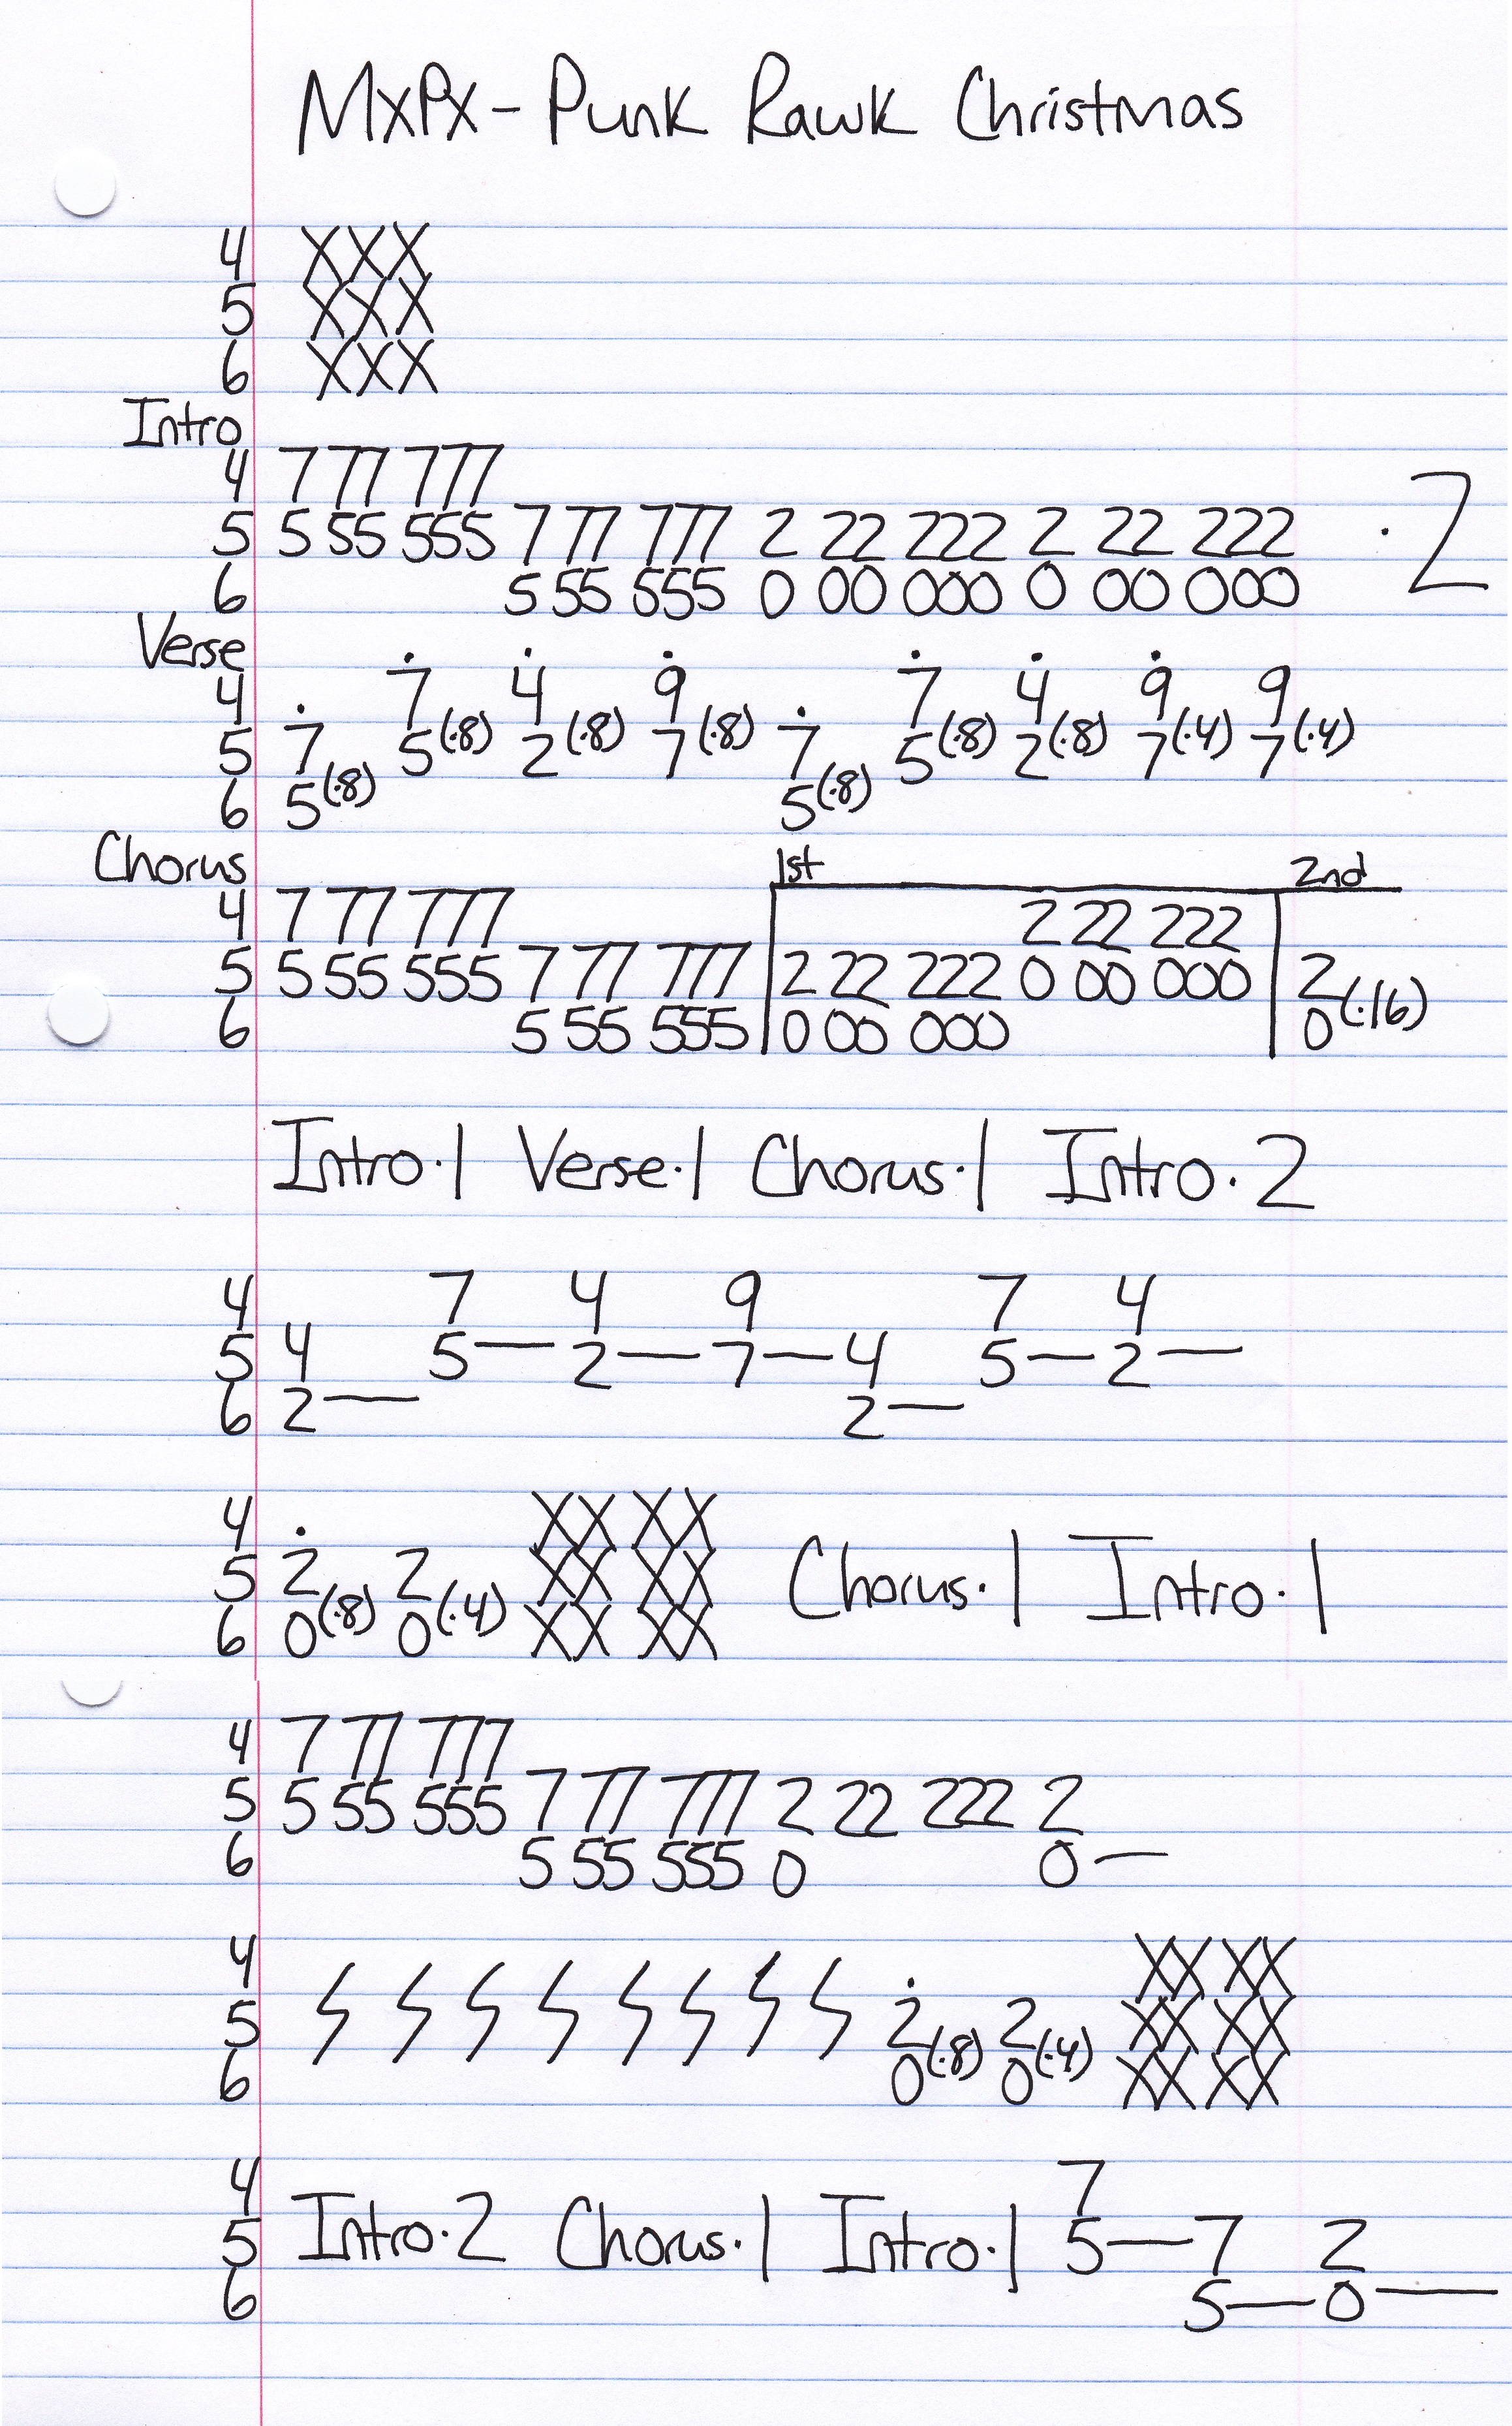 MxPx - Punk Rawk Christmas
4 XXX
5 XXX
6 XXX
Intro
4 7 77 777
5 5 55 555 7 77 777 2 22 222 2 22 222 ·2
6 5 55 555 0 00 000 0 00 000
Verse
4 7 4 9 7 4 9 9
5 7 5(·8) 2(·8) 7(·8) 7 5(·8) 2(·8) 7(·4) 7(·4)
6 5(·8) 5(·8)
Chorus 1st 2nd
4 7 77 777 2 22 222
5 5 55 555 7 77 777 2 22 222 0 00 000 2
6 5 55 555 0 00 000 0(·16)
Intro·1 Verse·1 Chorus·1 Intro·2
4 7 4 9 7 4
5 4 5— 2— 7— 4 5— 2—
6 2— 2—
4 XX XX
5 2 2 XX XX Chorus·1 Intro·1
6 0(·8) 0(·4) XX XX
4 7 77 777
5 5 55 555 7 77 777 2 22 222 2
6 5 55 555 0 0—
4 XX XX
5 2 2 XX XX
6 0(·8) 0(·4) XX XX
4 7
5 Intro·2 Chorus·1 Intro·1 5— 7 2
6 5— 0—